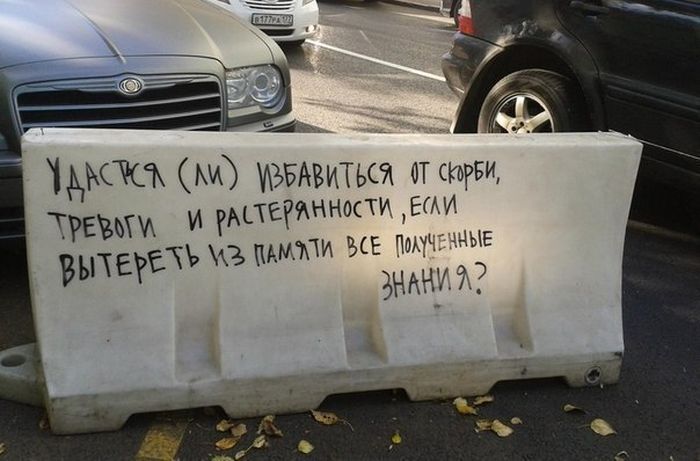 В177РА177
УДАСТЬСЯ (ЛИ) ИЗБАВИТЬСЯ ОТ СКОРБИ,
ТРЕВОГИ И РАСТЕРЯННОСТИ, ЕСЛИ
ВЫТЕРЕТЬ ИЗ ПАМЯТИ ВСЕ ПОЛУЧЕННЫЕ
ЗНАНИЯ?